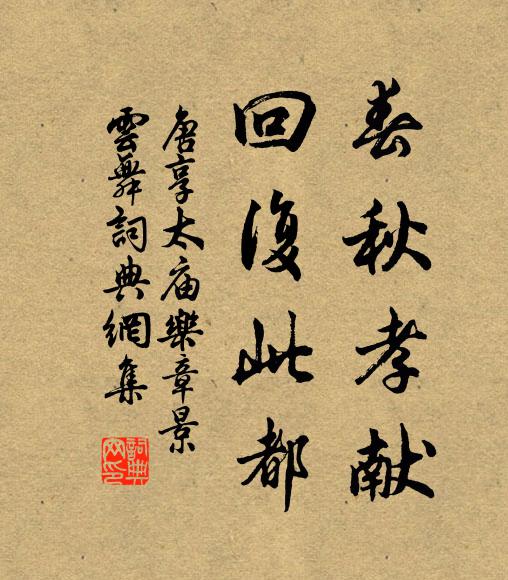 春秋孝献
回復此都
唐享太庙樂章景
雲舞詞典網集
詞典
网印